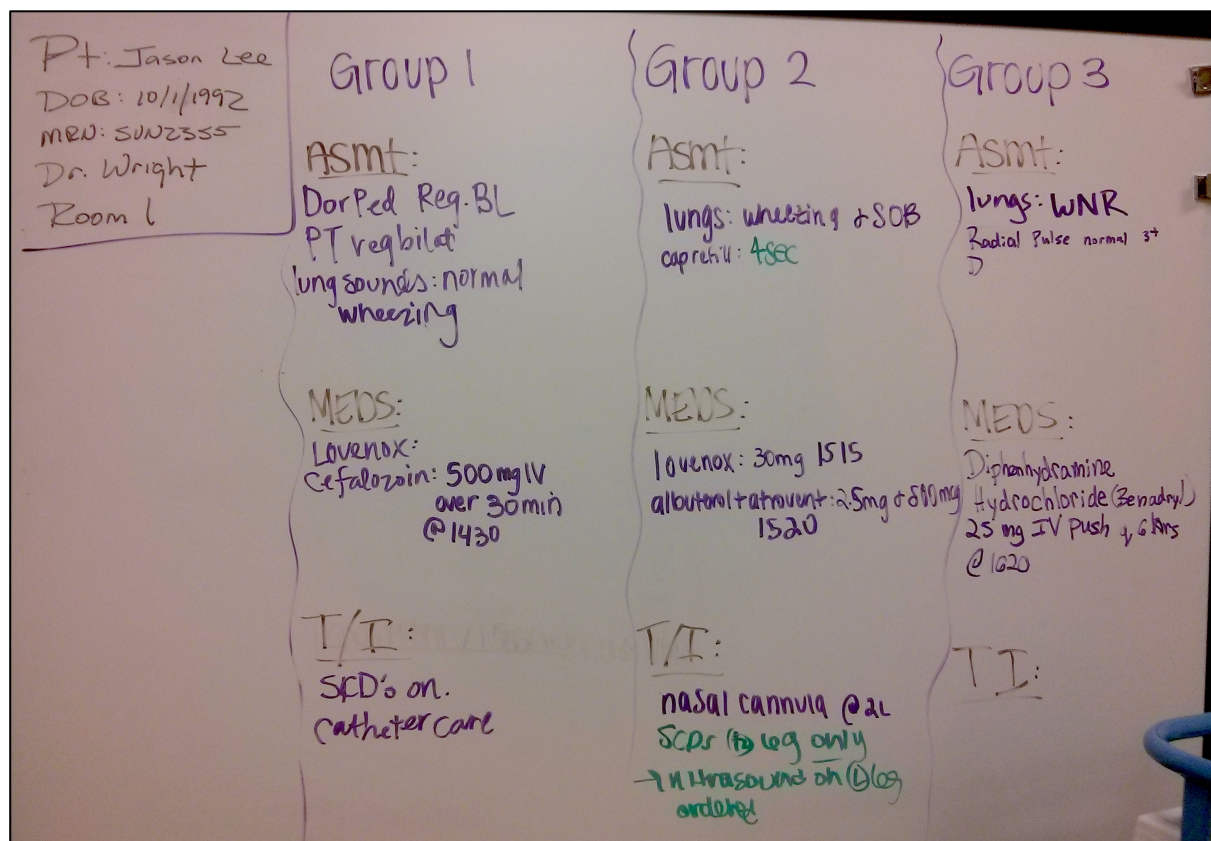 Pt: Jason Lee
DOB: 10/1/1992
MRN: SUN2355
Dr. Wright
Room 1
Group 1
Asmt:
DorPed Reg. BL
PT reg bilat
lung sounds: normal
wheezing
MEDS:
Lovenox:
Cefalozoin: 500mg IV
over 30min
@1430
T/I:
SCD's on.
catheter care
Group 2
Asmt:
lungs: wheezing & SOB
cap refill: 4sec
MEDS:
lovenox: 30mg 1515
albuterol + atrovent: 2.5mg & 500mg
1520
T/I:
nasal cannula @ 2L
SCDs (R) leg only
→ ultrasound on (L) leg
ordered
Group 3
Asmt:
lungs: WNR
Radial Pulse normal 3+
D
MEDS:
Diphenhydramine
Hydrochloride (Benadryl)
25 mg IV Push q 6 hrs
@ 1620
TI: